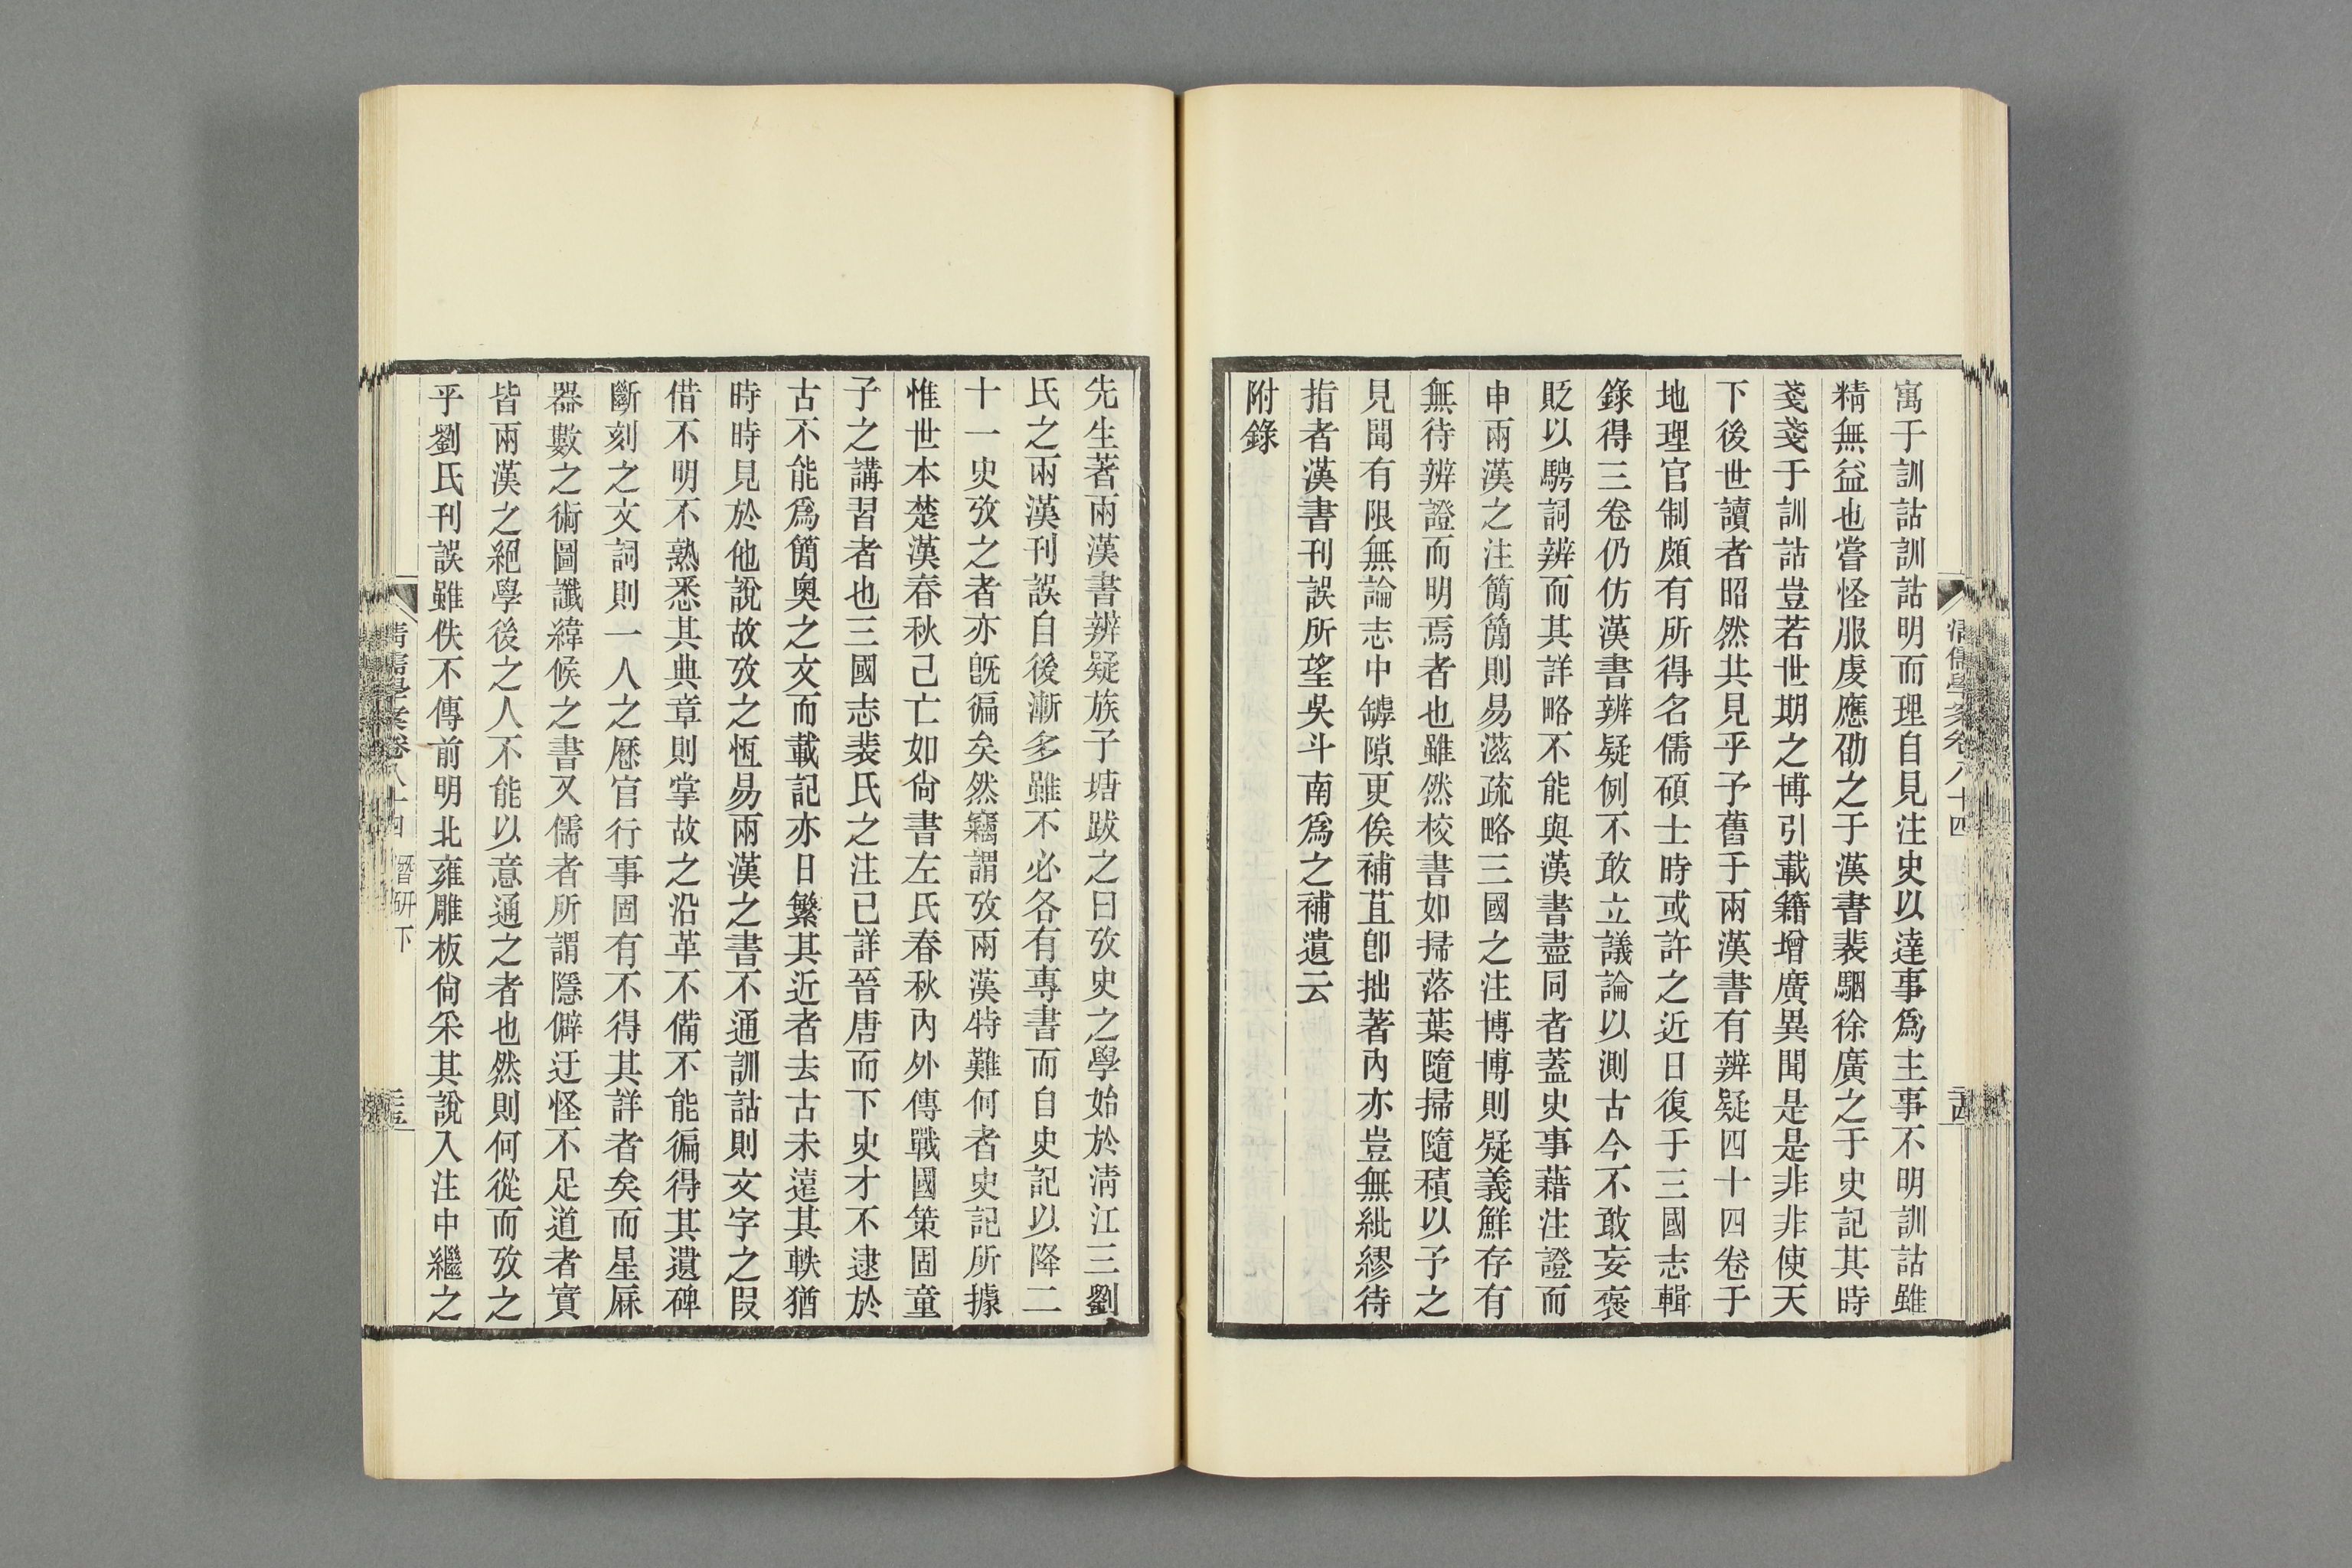 寓于訓詁訓詁明而理自見注史以達事爲主事不明訓詁雖
精無益也嘗怪服虔應劭之于漢書裴駰徐廣之于史記其時
戔戔于訓詁豈若世期之博引載籍增廣異聞是是非非使天
下後世讀者昭然共見乎予舊于兩漢書有辨疑四十四卷于
地理官制頗有所得名儒碩士時或許之近日復于三國志輯
錄得三卷仍仿漢書辨疑例不敢立議論以測古今不敢妄褒
貶以騁詞辨而其詳略不能與漢書盡同者蓋史事藉注證而
申兩漢之注簡簡則易滋疏略三國之注博博則疑義鮮存有
無待辨證而明焉者也雖然校書如掃落葉隨掃隨積以予之
見聞有限無論志中罅隙更俟補苴卽拙著內亦豈無紕繆待
指者漢書刊誤所望吳斗南爲之補遺云
附錄
清儒學案卷八十四
先生著兩漢書辨疑族子塘跋之曰攷史之學始於清江三劉
氏之兩漢刊誤自後漸多雖不必各有專書而自史記以降二
十一史攷之者亦旣徧矣然竊謂攷兩漢特難何者史記所據
惟世本楚漢春秋已亡如尙書左氏春秋內外傳戰國策固童
子之講習者也三國志裴氏之注已詳晉唐而下史才不逮於
古不能爲簡奧之文而載記亦日繁其近者去古未遠其軼猶
時時見於他說故攷之恆易兩漢之書不通訓詁則文字之叚
借不明不熟悉其典章則掌故之沿革不備不能徧得其遺碑
斷刻之文詞則一人之歷官行事固有不得其詳者矣而星厤
器數之術圖讖緯候之書又儒者所謂隱僻迂怪不足道者實
皆兩漢之絕學後之人不能以意通之者也然則何從而攷之
乎劉氏刊誤雖佚不傳前明北雍雕板尙采其說入注中繼之
清儒學案卷八十四 潛研下